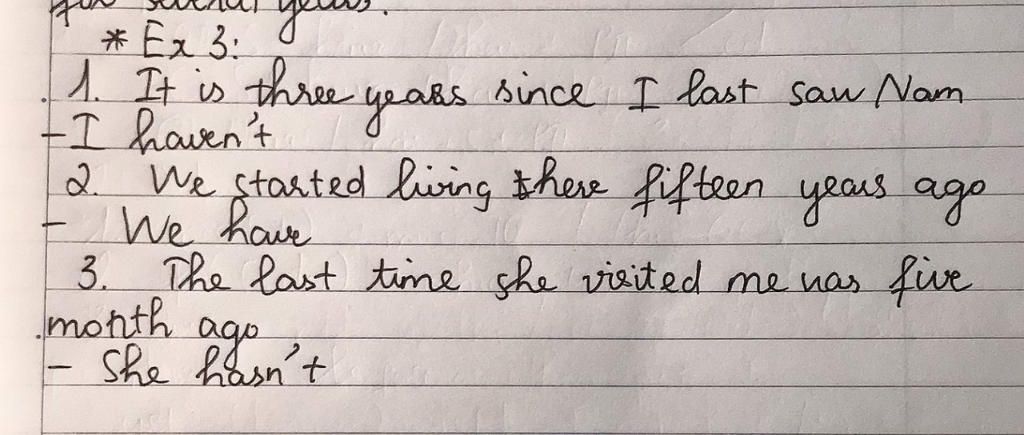 for several years.
* Ex 3:
1. It is three years since I last saw Nam
- I haven't
2. We started living there fifteen years ago
- We have
3. The last time she visited me was five
month ago
- She hasn't